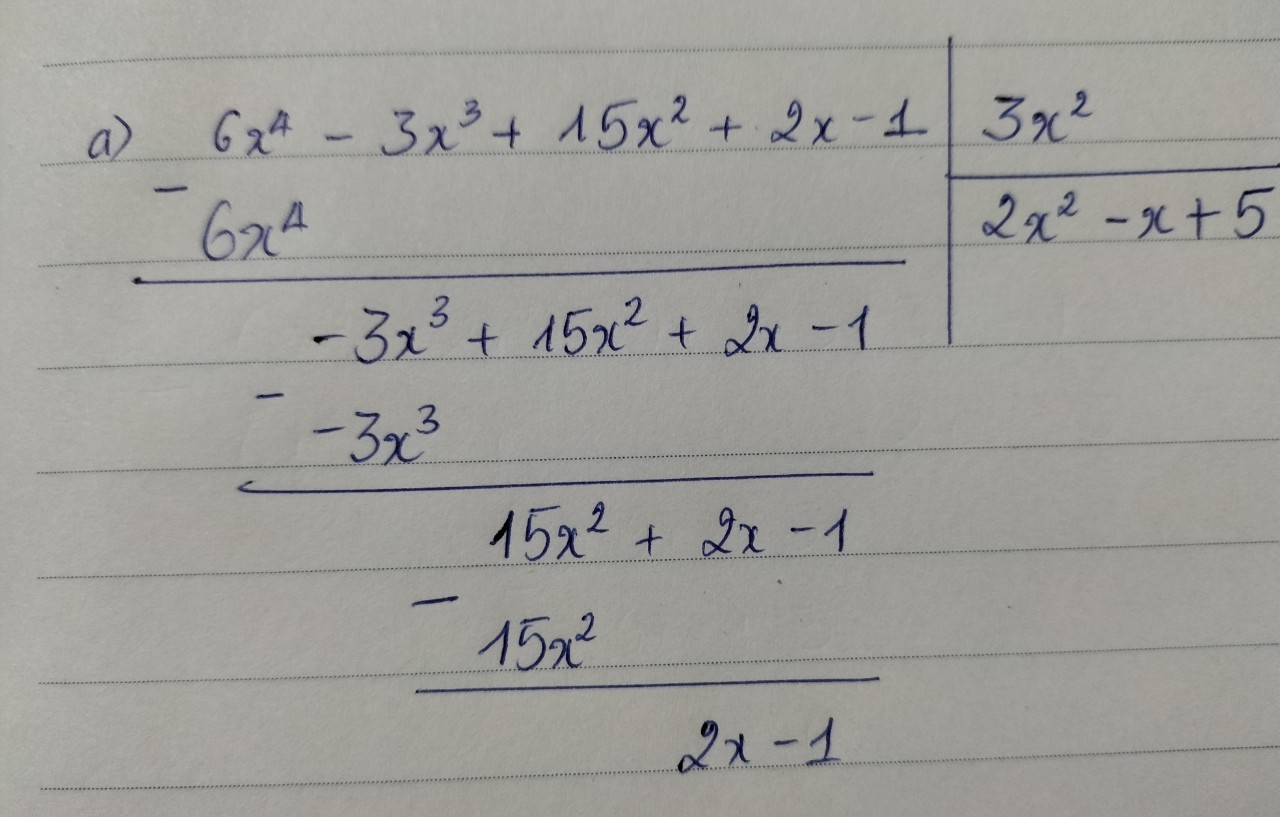 a) 6x⁴ - 3x³ + 15x² + 2x - 1 | 3x²
- 6x⁴ | 2x² - x + 5
-3x³ + 15x² + 2x - 1
- -3x³
15x² + 2x - 1
- 15x²
2x - 1